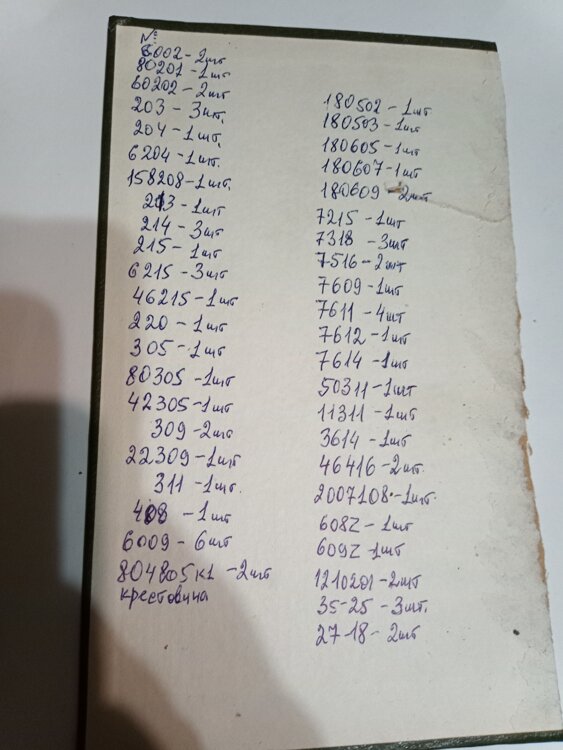 №
6002 - 2шт
80201 - 1шт
60202 - 2шт
203 - 3шт.
204 - 1шт.
6204 - 1шт.
158208 - 1шт.
213 - 1шт
214 - 3шт
215 - 1шт
6215 - 3шт
46215 - 1шт
220 - 1шт
305 - 1шт
80305 - 1шт
42305 - 1шт
309 - 2шт
22309 - 1шт
311 - 1шт.
408 - 1шт
6009 - 6шт
804805к1 - 2шт
крестовина
180502 - 1шт
180503 - 1шт
180605 - 1шт
180607 - 1шт
180609 - 2шт
7215 - 1шт
7318 - 3шт
7516 - 2шт
7609 - 1шт
7611 - 4шт
7612 - 1шт
7614 - 1шт
50311 - 1шт
11311 - 1шт
3614 - 1шт
46416 - 2шт.
2007108 - 1шт.
608Z - 1шт
609Z - 1шт
1210201 - 2шт
35-25 - 3шт.
27-18 - 2шт